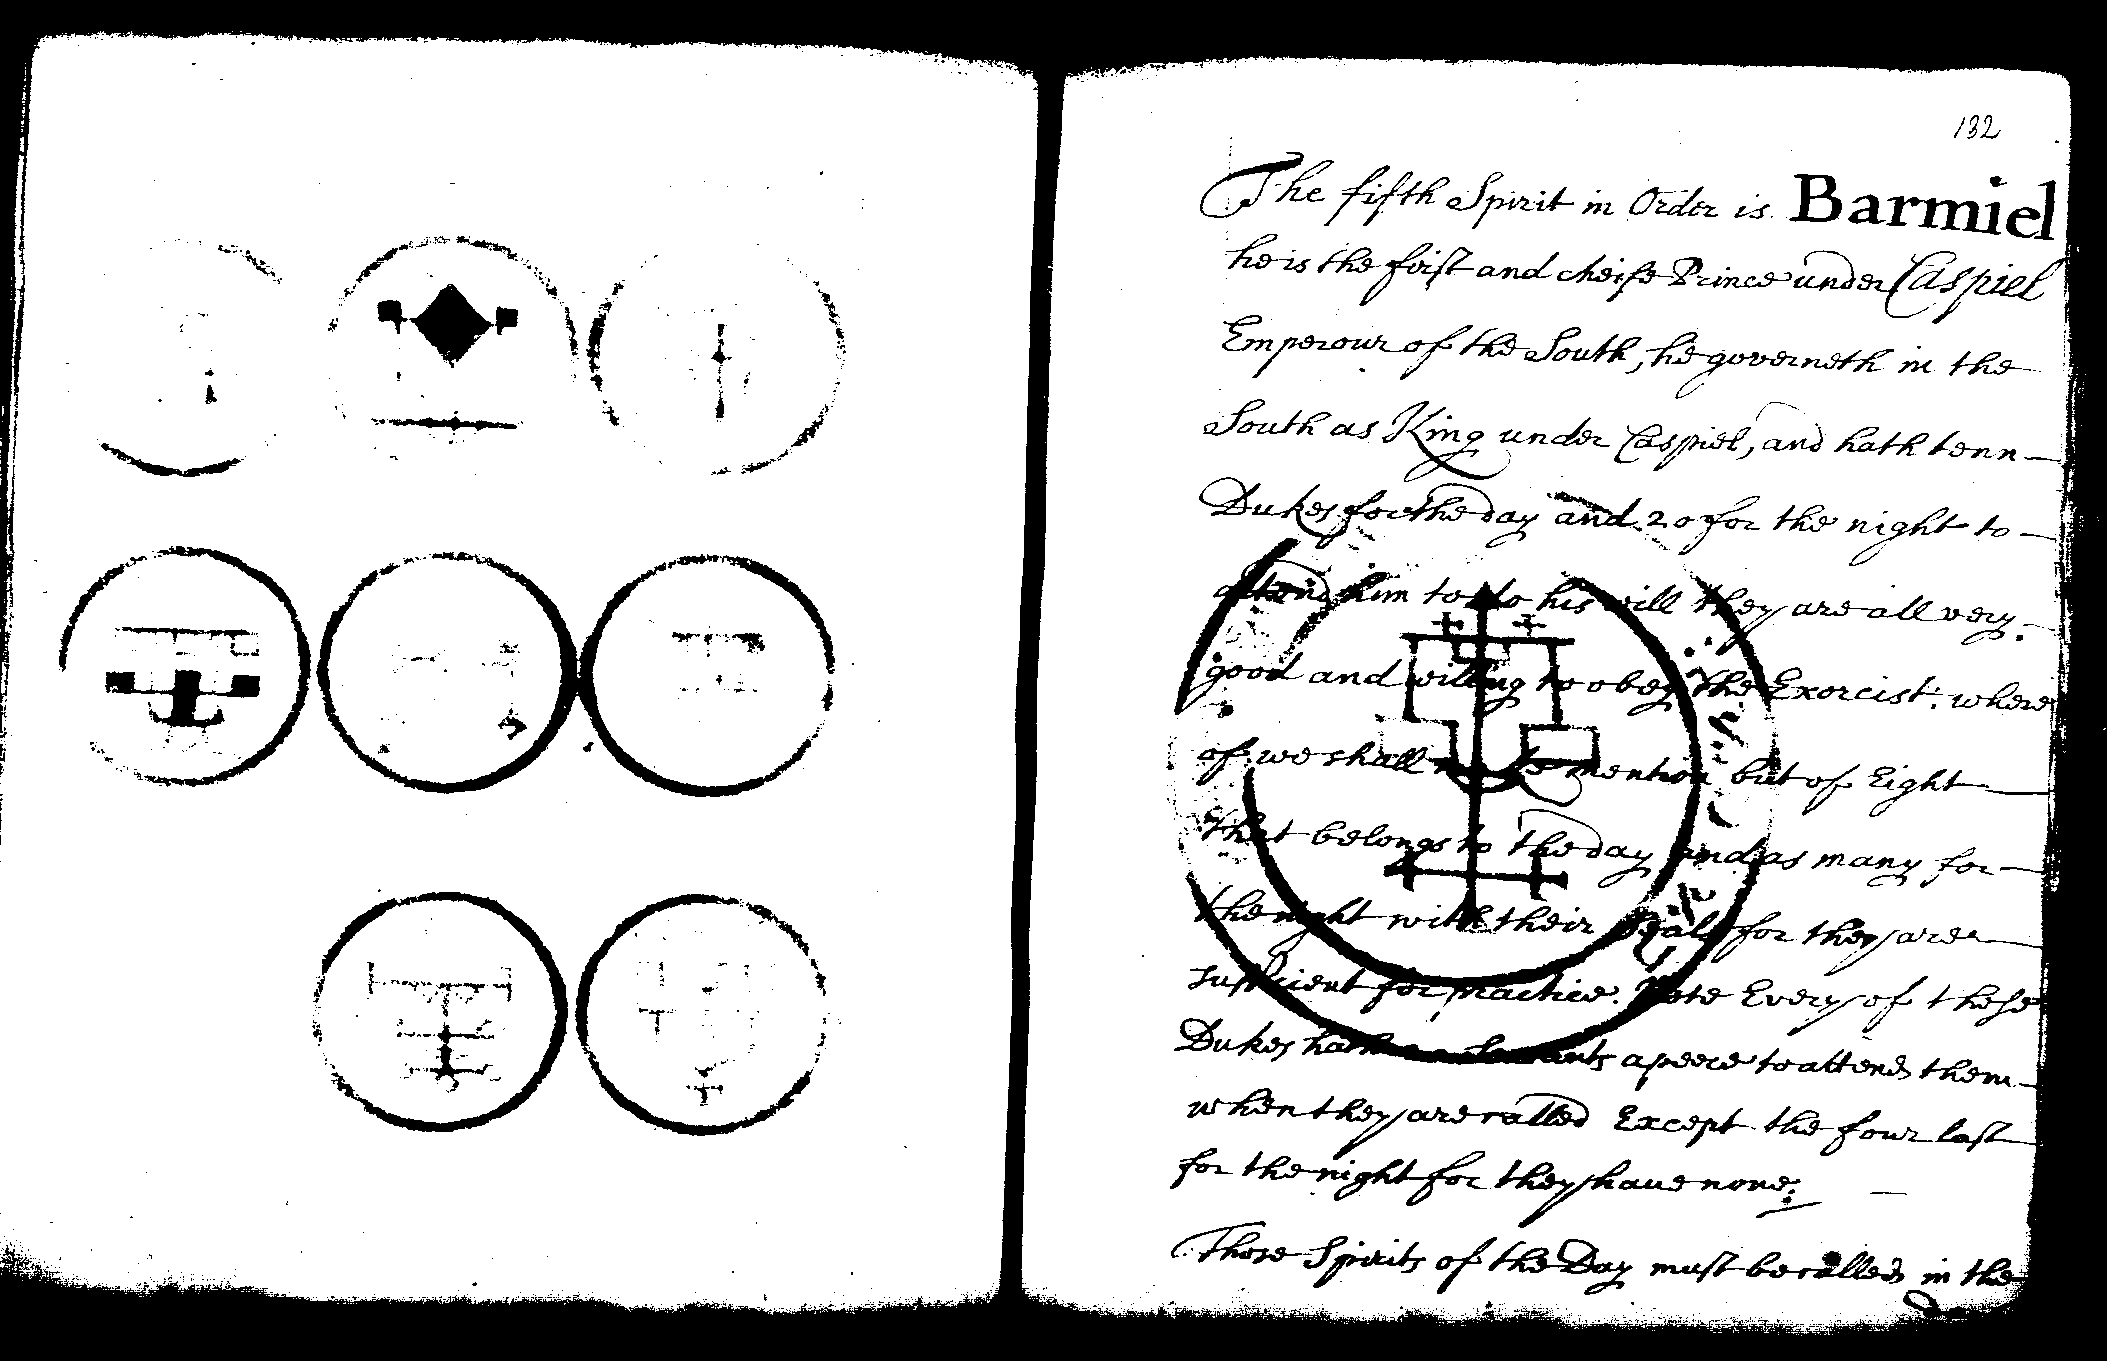 132
The fifth Spirit in Order is Barmiel
he is the first and cheife Prince under Caspiel
Emperour of the South, he governeth in the
South as King under Caspiel, and hath tenn
Dukes for the day and 20 for the night to
attend him to do his will they are all very
good and willing to obey the Exorcist: where
of we shall make mention but of Eight
that belongs to the day and as many for
the night with their Seals for they are
sufficient for practice. Note Every of these
Dukes hath servants apeece to attend them
when they are called Except the four last
for the night for they have none.
Those Spirits of the Day must be called in the